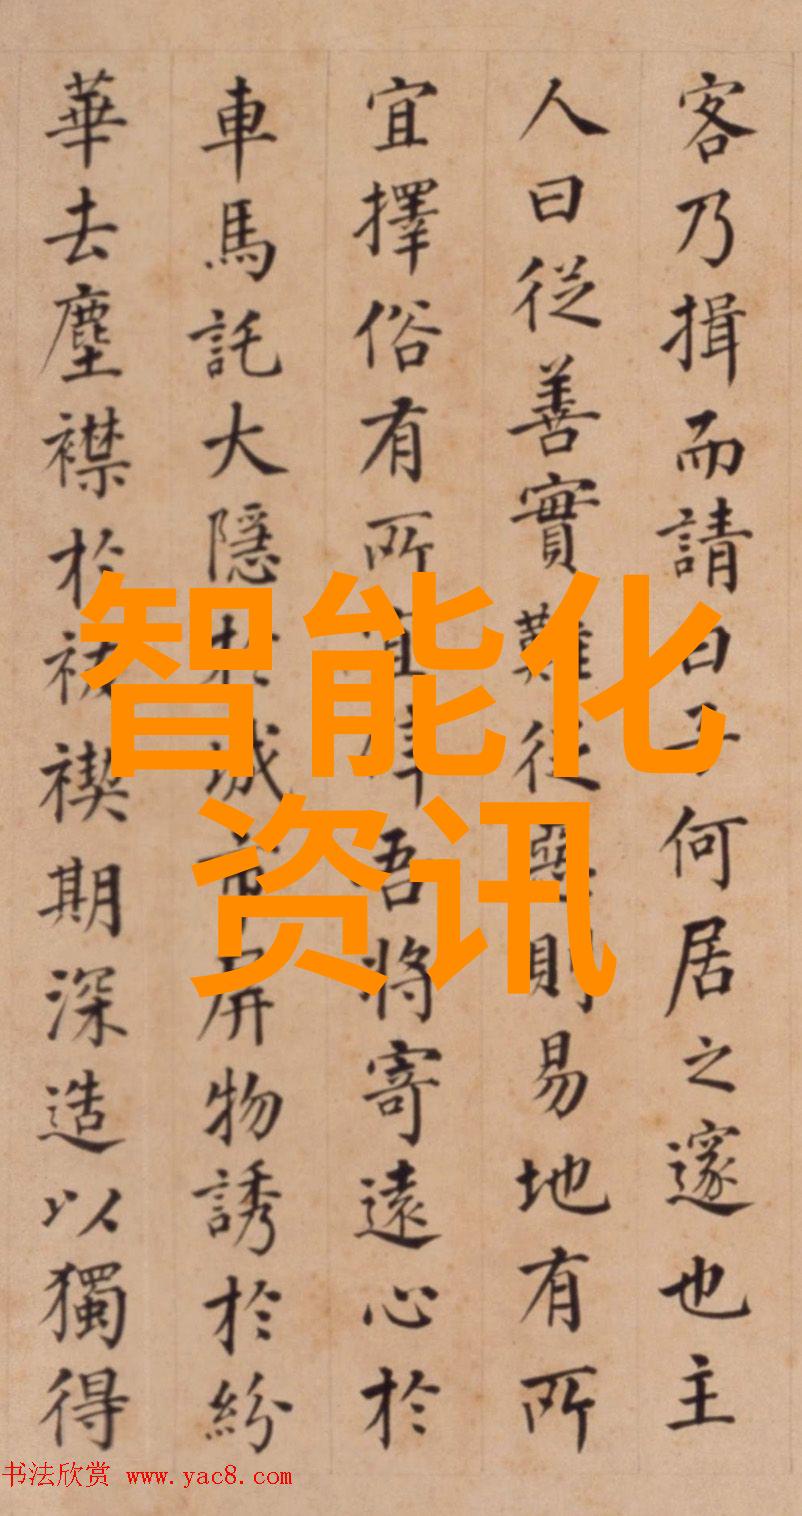 客乃揖而請曰子何居之邃也主
人曰從善實難從惡則易地有所
宜擇俗有所宜吾將寄遠心於
車馬託大隱於城市屏物誘於紛
華去塵襟於祓禊期深造以獨得
智能化
资讯
书法欣赏 www.yac8.com